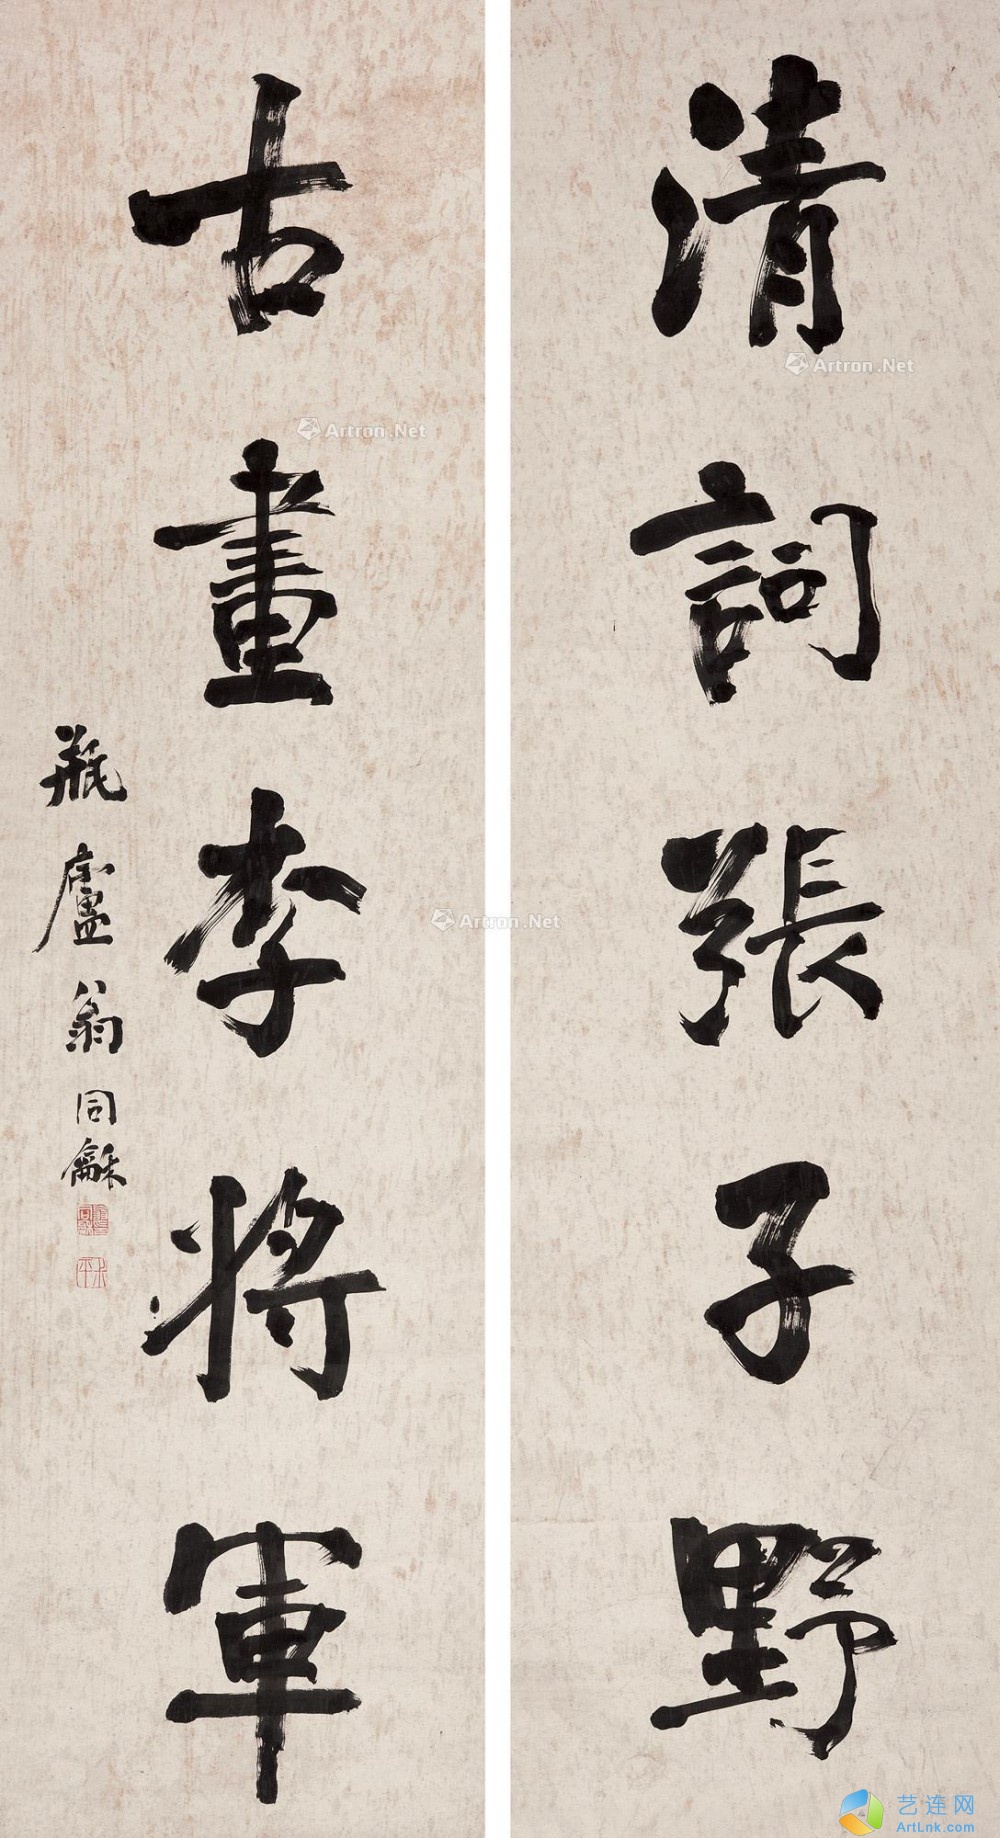 清詞張子野
古畫李將軍
瓶廬翁同龢
Artron.Net
Artron.Net
Artron.Net
艺连网
ArtLnk.com